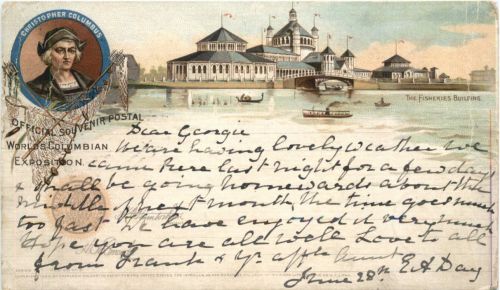 CHRISTOPHER COLUMBUS
THE FISHERIES BUILDING.
OFFICIAL SOUVENIR POSTAL
WORLD'S COLUMBIAN
EXPOSITION.
Dear Georgie
We are having lovely weather we
came here last night for a few days
& shall be going homewards about the
middle of next month, the time goes much
too fast We have enjoyed it very much
Hope you are all well Love to all
from Frank & Yr affte Aunt
June 28th E A Day